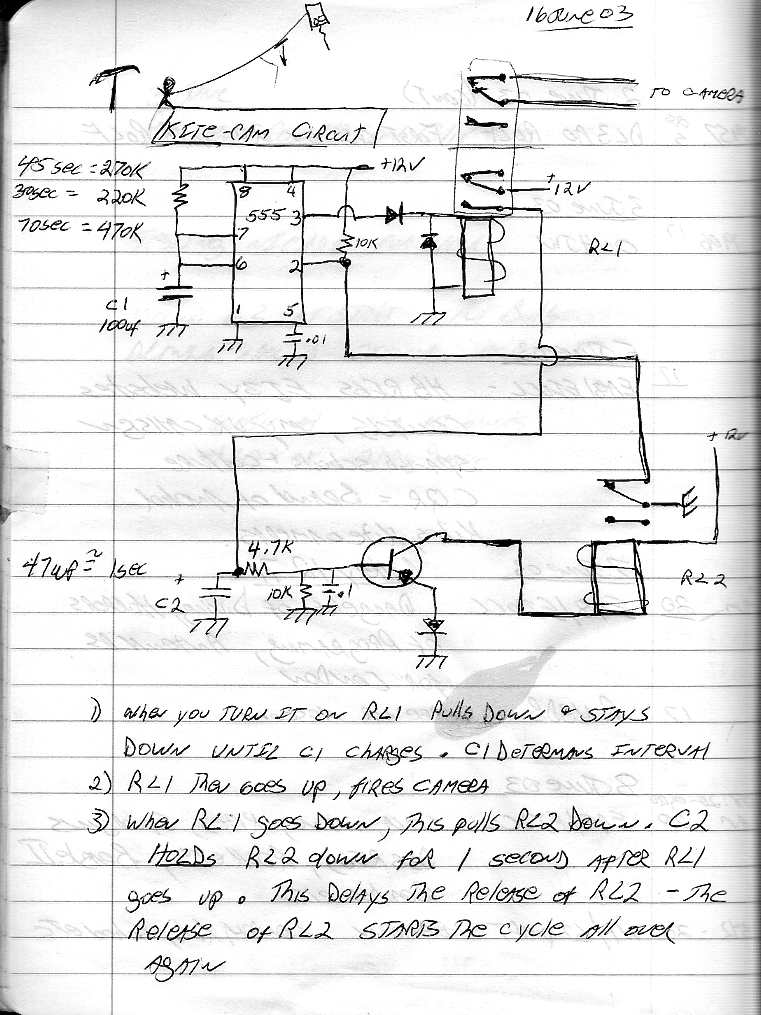 16 June 03
TO CAMERA
KITE-CAM CIRCUIT
45 sec = 270K
30sec = 220K
70sec = 470K
+12V
+
12V
8 4
555 3
7
10K
6 2
RL1
+
C1
100uf
1 5
.01
+12v
4.7K
47uf ≈ 1sec
+
C2
10K
.1
RL2
1) When you TURN IT ON RL1 PULLS DOWN & STAYS
DOWN UNTIL C1 CHARGES. C1 DETERMANS INTERVAL
2) RL1 Then goes UP, FIRES CAMERA
3) When RL1 goes DOWN, This pulls RL2 Down. C2
HOLDS RL2 down for 1 second AFTER RL1
goes up. This Delays The Release of RL2 - The
Release of RL2 STARTS The cycle All over
AGAIN